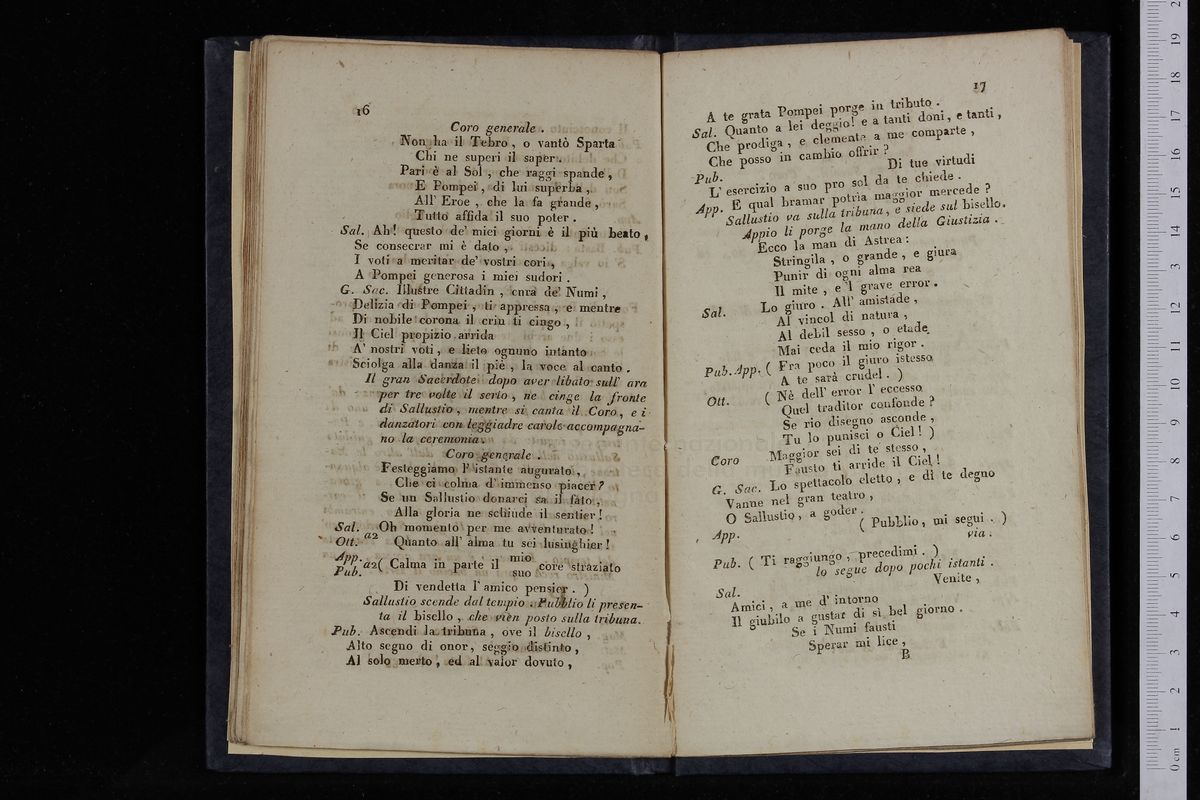 16
Coro generale .
Non ha il Tebro , o vantò Sparta
Chi ne superi il saper .
Pari è al Sol , che raggi spande ,
E Pompei , di lui superba ,
All' Eroe , che la fa grande ,
Tutto affida il suo poter .
Sal. Ah ! questo de' miei giorni è il più beato ,
Se consecrar mi è dato ,
I voti a meritar de' vostri cori ,
A Pompei generosa i miei sudori .
G. Sac. Illustre Cittadin , cura de' Numi ,
Delizia di Pompei , ti appressa , e mentre
Di nobile corona il crin ti cingo ,
Il Ciel propizio arrida
A' nostri voti , e lieto ognuno intanto
Sciolga alla danza il piè , la voce al canto .
Il gran Sacerdote dopo aver libato sull' ara
per tre volte il serto , ne cinge la fronte
di Sallustio , mentre si canta il Coro , e i
danzatori con leggiadre carole accompagna-
no la ceremonia .
Coro generale .
Festeggiamo l' istante augurato ,
Che ci colma d' immenso piacer ?
Se un Sallustio donarci sa il fato ,
Alla gloria ne schiude il sentier !
Sal. Oh momento per me avventurato !
Ott. a2 Quanto all' alma tu sei lusinghier !
App. Pub. a2 ( Calma in parte il mio suo core straziato
Di vendetta l' amico pensier . )
Sallustio scende dal tempio . Pubblio li presen-
ta il bisello , che vien posto sulla tribuna .
Pub. Ascendi la tribuna , ove il bisello ,
Alto segno di onor , seggio distinto ,
Al solo merto , ed al valor dovuto ,
17
A te grata Pompei porge in tributo .
Sal. Quanto a lei deggio ! e a tanti doni , e tanti ,
Che prodiga , e clemente a me comparte ,
Che posso in cambio offrir ?
Pub. Di tue virtudi
L' esercizio a suo pro sol da te chiede .
App. E qual bramar potria maggior mercede ?
Sallustio va sulla tribuna , e siede sul bisello .
Appio li porge la mano della Giustizia .
Ecco la man di Astrea :
Stringila , o grande , e giura
Punir di ogni alma rea
Il mite , e 'l grave error .
Sal. Lo giuro . All' amistade ,
Al vincol di natura ,
Al debil sesso , o etade
Mai ceda il mio rigor .
Pub. App. ( Fra poco il giuro istesso
A te sarà crudel . )
Ott. ( Nè dell' error l' eccesso
Quel traditor confonde ?
Se rio disegno asconde ,
Tu lo punisci o Ciel ! )
Coro Maggior sei di te stesso ,
Fausto ti arride il Ciel !
G. Sac. Lo spettacolo eletto , e di te degno
Vanne nel gran teatro ,
O Sallustio , a goder .
App. ( Pubblio , mi segui . )
via .
Pub. ( Ti raggiungo , precedimi . )
lo segue dopo pochi istanti .
Sal. Venite ,
Amici , a me d' intorno
Il giubilo a gustar di sì bel giorno .
Se i Numi fausti
Sperar mi lice ,
B
0 cm 1 2 3 4 5 6 7 8 9 10 11 12 13 14 15 16 17 18 19